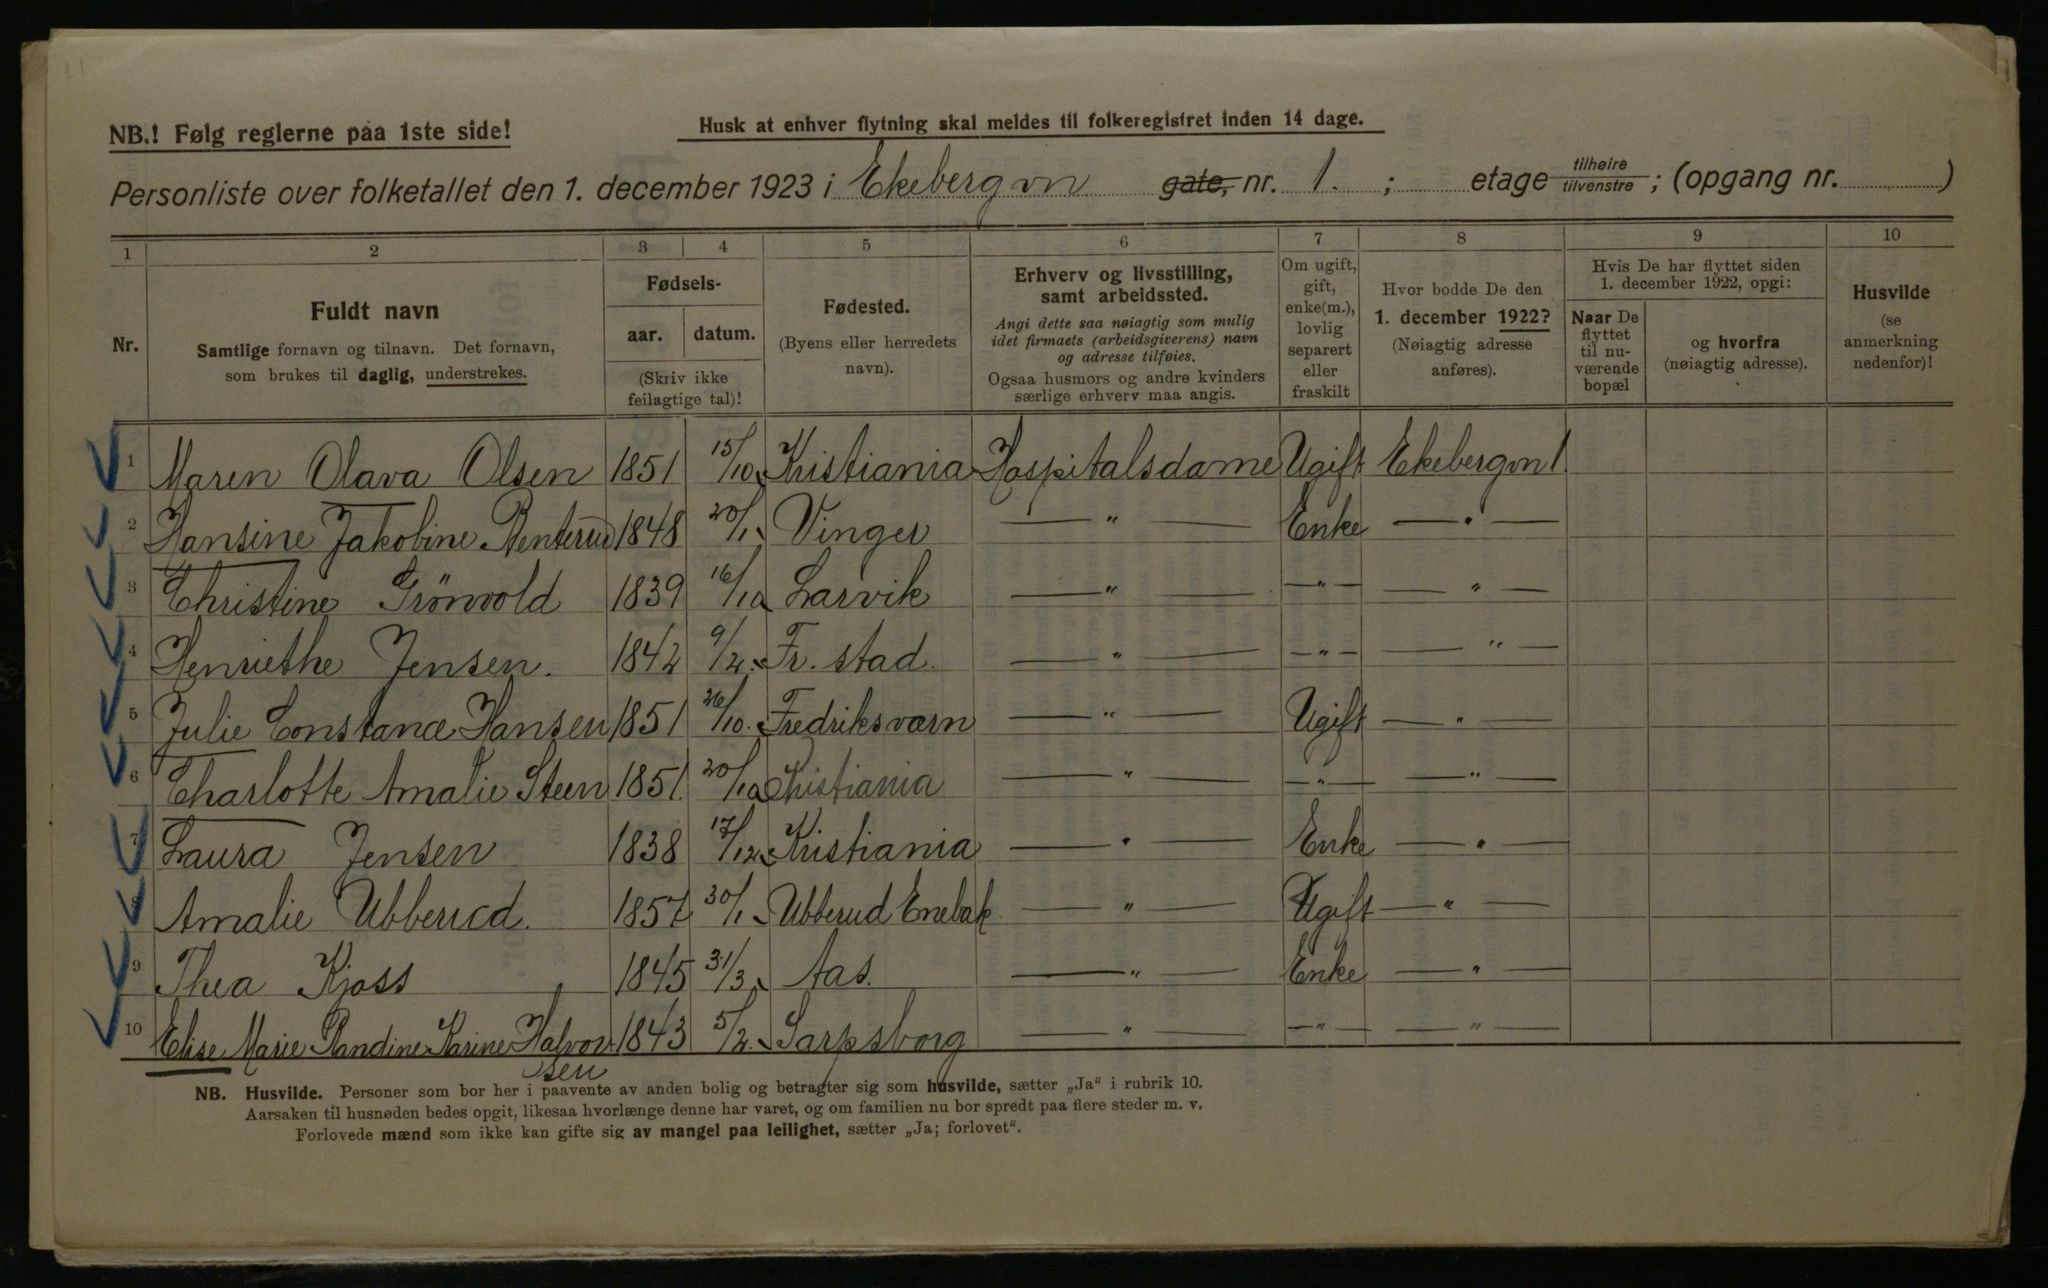 NB.! Følg reglerne paa 1ste side!
Husk at enhver flytning skal meldes til folkeregistret inden 14 dage.
Personliste over folketallet den 1. december 1923 i Ekebergvn gate, nr. 1. ; etage tilhøire tilvenstre ; (opgang nr. )
1 2 3 4 5 6 7 8 9 10
Nr.
Fuldt navn
Samtlige fornavn og tilnavn. Det fornavn,
som brukes til daglig, understrekes.
Fødsels-
aar. datum.
(Skriv ikke
feilagtige tal)!
Fødested.
(Byens eller herredets
navn).
Erhverv og livsstilling,
samt arbeidssted.
Angi dette saa nøiagtig som mulig
idet firmaets (arbeidsgiverens) navn
og adresse tilføies.
Ogsaa husmors og andre kvinders
særlige erhverv maa angis.
Om ugift,
gift,
enke(m.),
lovlig
separert
eller
fraskilt
Hvor bodde De den
1. december 1922?
(Nøiagtig adresse
anføres).
Hvis De har flyttet siden
1. december 1922, opgi:
Naar De
flyttet
til nu-
værende
bopæl
og hvorfra
(nøiagtig adresse).
Husvilde
(se
anmerkning
nedenfor)!
1 Maren Olava Olsen 1851 15/10 Kristiania Hospitalsdame Ugift Ekebergvn 1
2 Hansine Jakobine 1848 20/1 Vinger — " — Enke — " —
3 Christine Grönvold 1839 16/10 Larvik — " — — " — — " —
4 Henriethe Jensen. 1842 9/2. Fr. stad. — " — — " — — " —
5 Julie Constance Hansen 1851 26/10. Fredriksværn — " — Ugift — " —
6 Charlotte Amalie Steen 1851. 20/10 Kristiania — " — — " — — " —
7 Laura Jensen 1838 17/12 Kristiania — " — Enke — " —
8 Amalie Ubberud. 1857 30/1 Ubberud Enebak — " — Ugift — " —
9 Thea Kjoss 1845 31/3 Aas. — " — Enke — " —
10 Elise Marie Randine Karine Halvor- 1843 5/2. Sarpsborg — " — — " — — " —
sen
NB. Husvilde. Personer som bor her i paavente av anden bolig og betragter sig som husvilde, sætter „Ja“ i rubrik 10.
Aarsaken til husnøden bedes opgit, likesaa hvorlænge denne har varet, og om familien nu bor spredt paa flere steder m. v.
Forlovede mænd som ikke kan gifte sig av mangel paa leilighet, sætter „Ja; forlovet“.